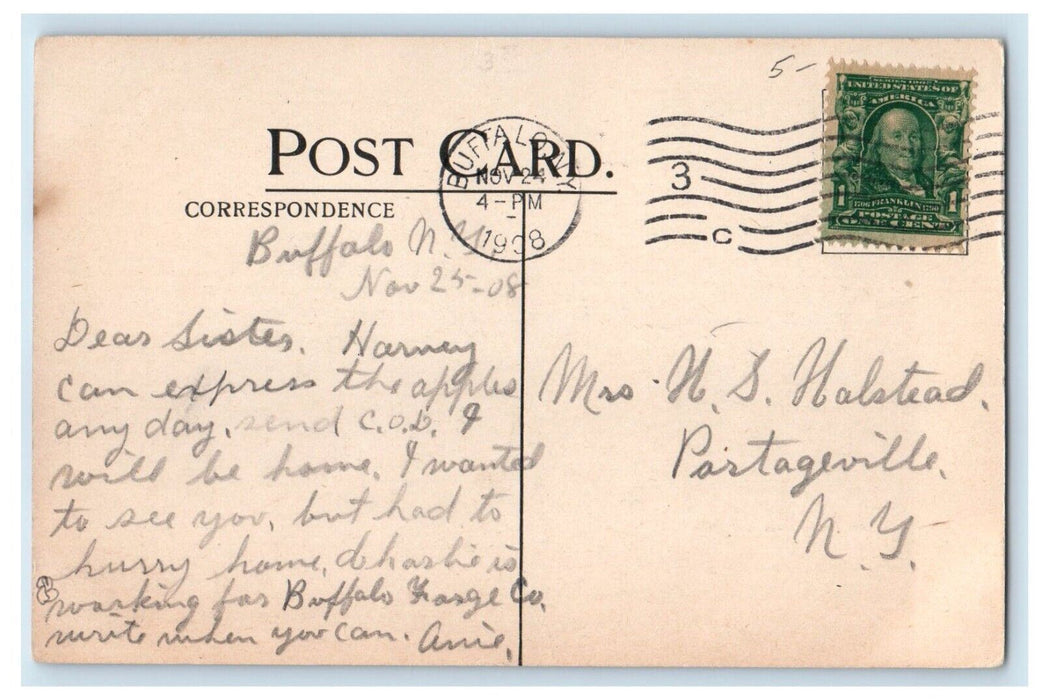 5-
POST CARD.
CORRESPONDENCE
BUFFALO, N.Y.
NOV 24
4-PM
1908
3
C
SERIES 1902
UNITED STATES OF
AMERICA
1 1
FRANKLIN
POSTAGE
ONE CENT
Buffalo N.Y.
Nov 25-08
Dear Sister. Harvey
can express the apples
any day. send C.O.D. I
will be home. I wanted
to see you, but had to
hurry home, Charlie is
working for Buffalo Forge Co.
write when you can. Anie.
Mrs. H. S. Halstead.
Portageville.
N. Y.